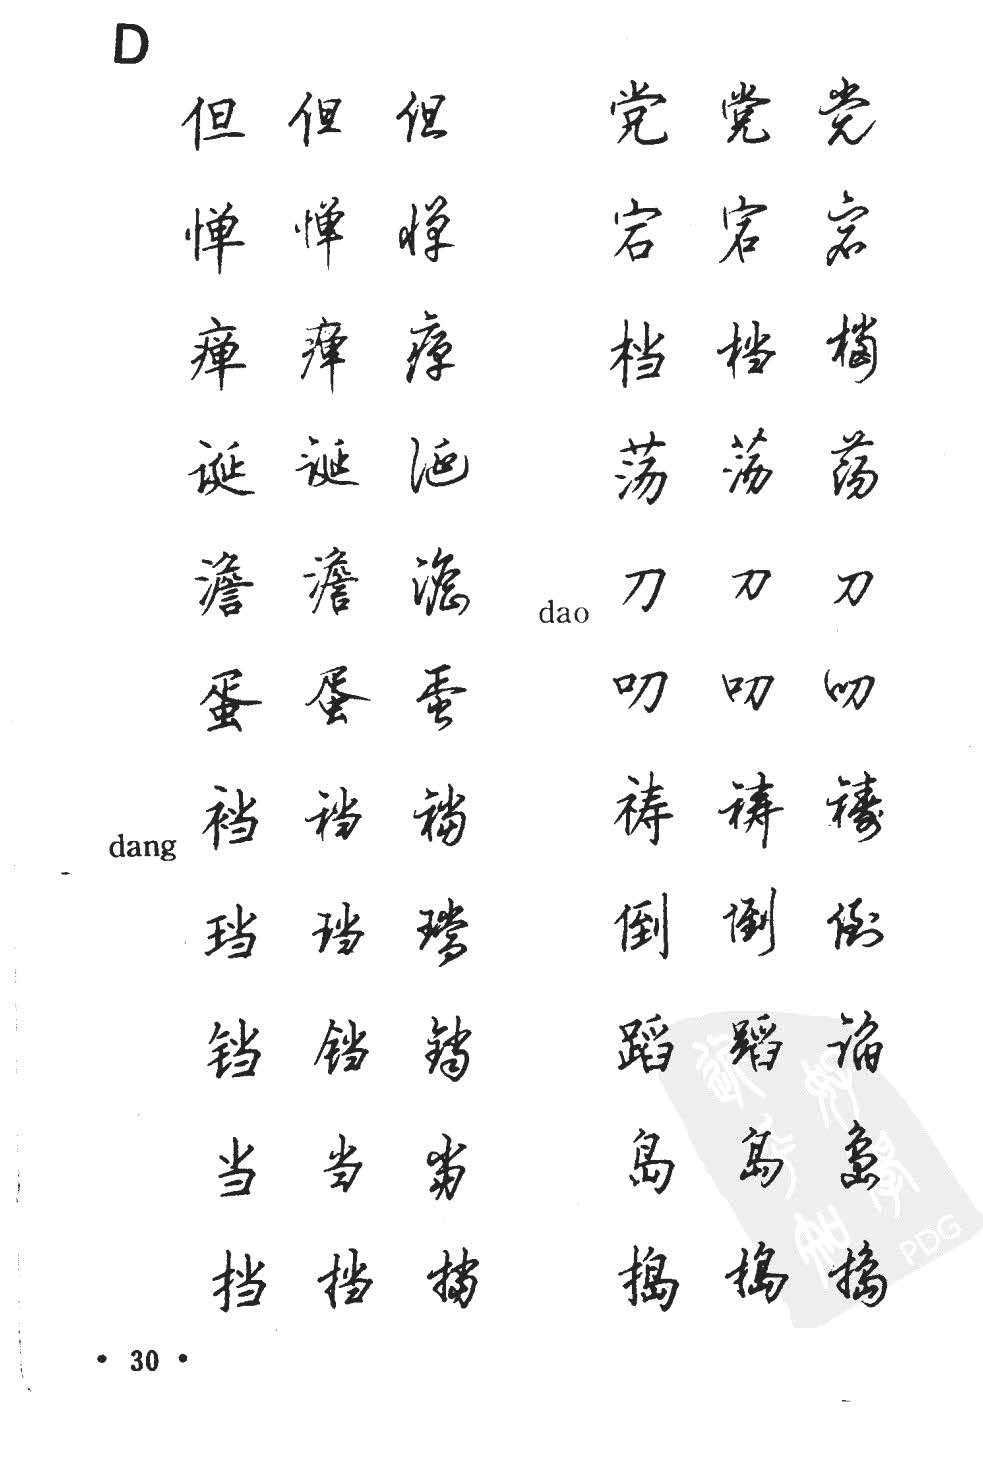 D
但 但 但
惮 惮 惮
瘅 瘅 瘅
诞 诞 诞
澹 澹 澹
蛋 蛋 蛋
dang
裆 裆 裆
珰 珰 珰
铛 铛 铛
当 当 当
挡 挡 挡
党 党 党
宕 宕 宕
档 档 档
荡 荡 荡
dao
刀 刀 刀
叨 叨 叨
祷 祷 祷
倒 倒 倒
蹈 蹈 蹈
岛 岛 岛
捣 捣 捣
PDG
• 30 •